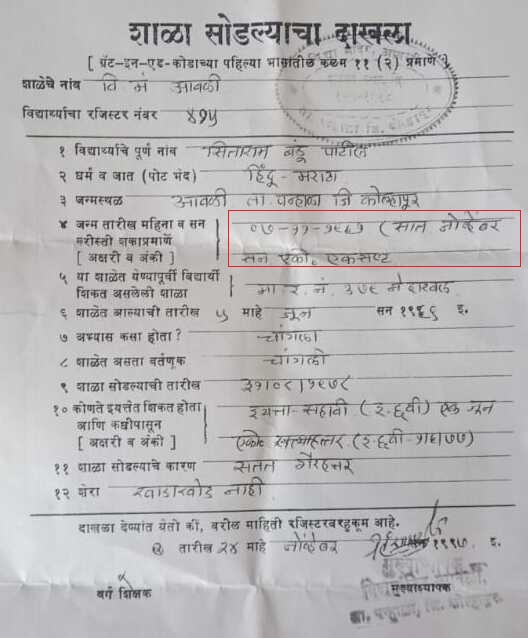 शाळा सोडल्याचा दाखला
[ ग्रॅट-इन-एड-कोडाच्या पहिल्या भागातील कलम ११ (२) प्रमाणे ]
शाळेचे नांव वि. मं आवळी
विद्यार्थ्याचा रजिस्टर नंबर ४१५
१ विद्यार्थ्याचे पूर्ण नांव सिताराम बंडू पाटील
२ धर्म व जात (पोट भेद) हिंदू - मराठा
३ जन्मस्थळ आवळी ता. पन्हाळा जि कोल्हापूर
४ जन्म तारीख महिना व सन ०७-११-१९६१ (सात नोव्हेंबर
सरीस्ती शकाप्रमाणे
[ अक्षरी व अंकी ] सन एको. एकसष्ट
५ या शाळेत येण्यापूर्वी विद्यार्थी
शिकत असलेली शाळा मा र. नं. ३७९ ने दाखल
६ शाळेत आल्याची तारीख माहे जून सन १९६९ इ.
७ अभ्यास कसा होता? चांगला
८ शाळेत असता वर्तणूक चांगली
९ शाळा सोडल्याची तारीख ३१०८।१९७८
१० कोणते इयत्तेत शिकत होता इयत्ता-सहावी (इ. ६वी) एक जून
आणि कधीपासून
[ अक्षरी व अंकी ] एको. सत्याहत्तर (इ. ६वी - १।६।७७)
११ शाळा सोडल्याचे कारण सतत गैरहजर
१२ शेरा खाडाखोड नाही
दाखला देण्यांत येतो की, वरील माहिती रजिस्टरबरहुकूम आहे.
तारीख २४ माहे नोव्हेंबर १९९७. इ.
वर्ग शिक्षक मुख्याध्यापक